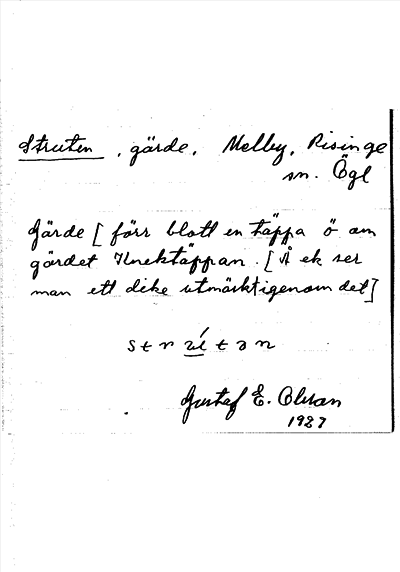 Struten, gärde, Melby, Risinge
sn. Ögl
Gärde [ förr blott en täppa ö om
gärdet Knektäppan. [ Å ek ser
man ett dike utmärkt igenom det]
str t n
Gustaf E. Olsson
1927